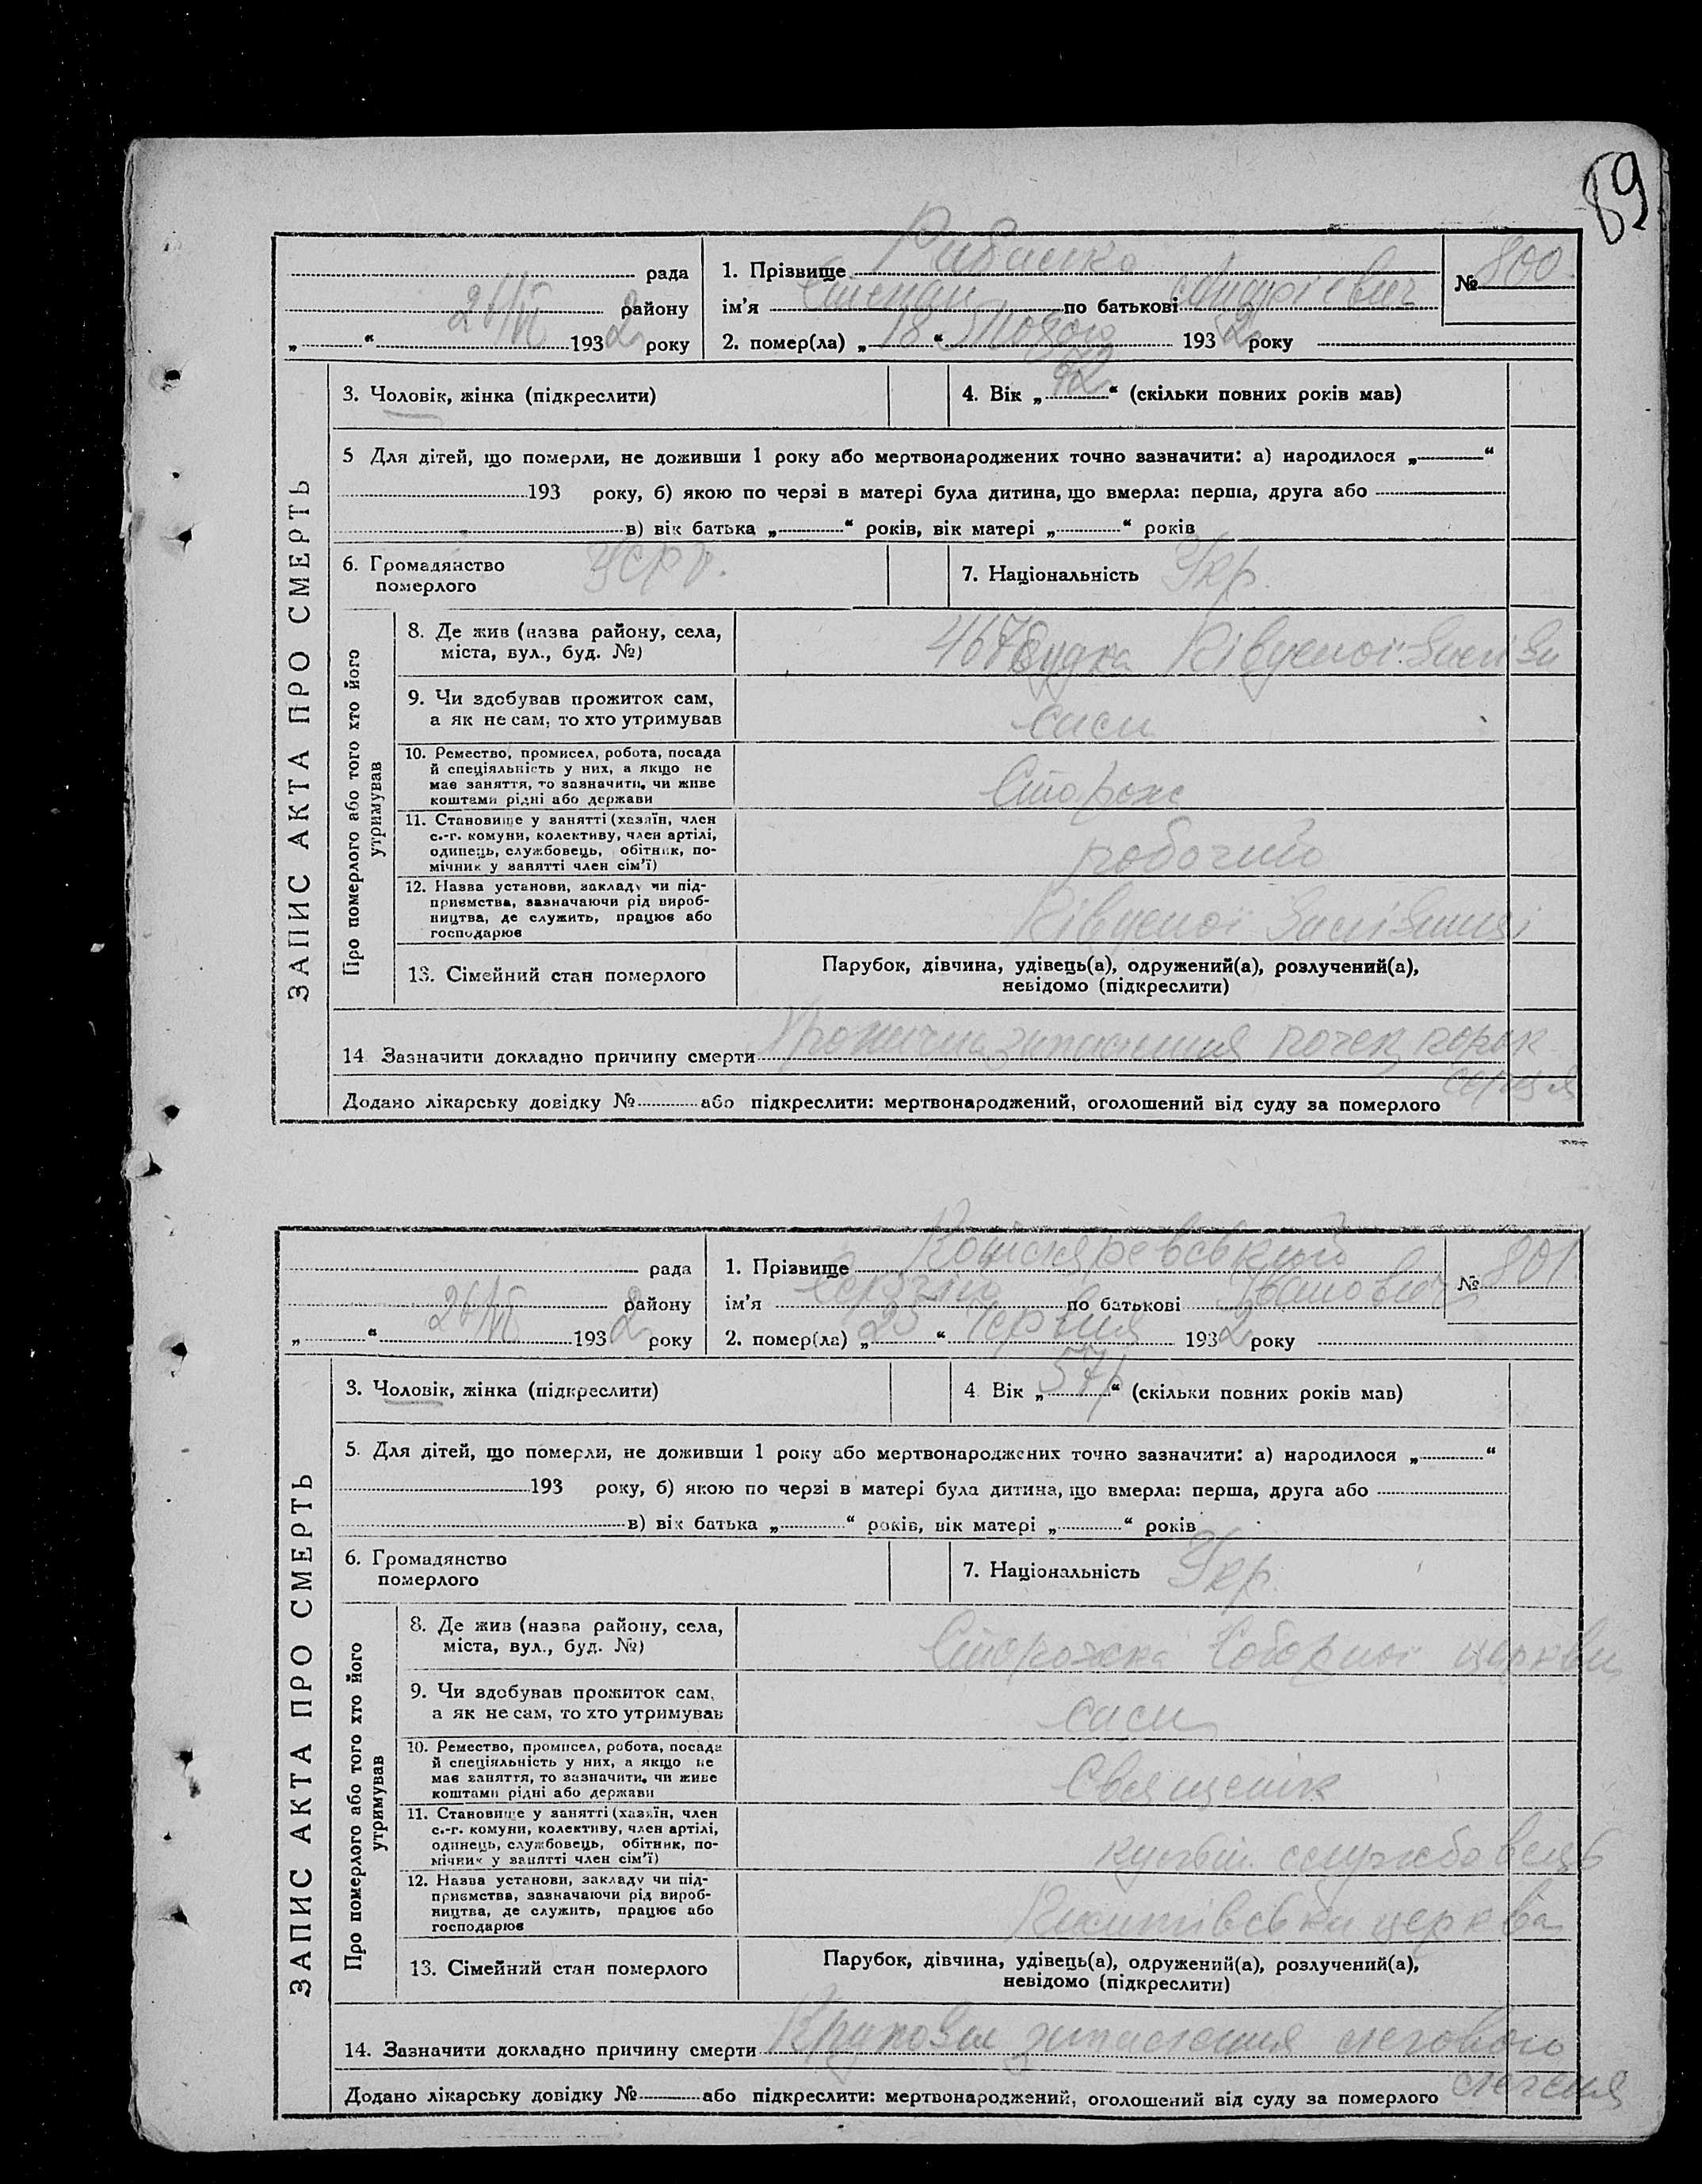 89
рада
1. Прізвище Рибалко
№ 800
району
ім'я Степан по батькові Андрієвич
„ “ 26/VI 1932 року
2. помер(ла) „18“ Лютого 1932 року
ЗАПИС АКТА ПРО СМЕРТЬ
3. Чоловік, жінка (підкреслити)
4. Вік „72“ (скільки повних років мав)
5 Для дітей, що померли, не доживши 1 року або мертвонароджених точно зазначити: а) народилося „ “
193 року, б) якою по черзі в матері була дитина, що вмерла: перша, друга або
в) вік батька „ “ років, вік матері „ “ років
6. Громадянство
померлого
УСРР.
7. Національність Укр.
Про померлого або того хто його
утримував
8. Де жив (назва району, села,
міста, вул., буд. №)
467 будка Південої
9. Чи здобував прожиток сам,
а як не сам, то хто утримував
сам
10. Ремество, промисел, робота, посада
й спеціяльність у них, а якщо не
має заняття, то зазначити, чи живе
коштами рідні або держави
Сторож
11. Становище у занятті (хазяїн, член
с.-г. комуни, колективу, член артілі,
одинець, службовець, обітник, по-
мічник у занятті член сім'ї)
робочий
12. Назва установи, закладу чи під-
приємства, зазначаючи рід вироб-
ництва, де служить, працює або
господарює
Південої Залізниці
13. Сімейний стан померлого
Парубок, дівчина, удівець(а), одружений(а), розлучений(а),
невідомо (підкреслити)
14 Зазначити докладно причину смерти Хронична запалення почек, порок
серця
Додано лікарську довідку № або підкреслити: мертвонароджений, оголошений від суду за померлого
рада
1. Прізвище Котляревський
№ 801
району
ім'я Сергій по батькові Іванович
„ “ 26/VI 1932 року
2. помер(ла) „25“ Червня 1932 року
ЗАПИС АКТА ПРО СМЕРТЬ
3. Чоловік, жінка (підкреслити)
4 Вік „57р“ (скільки повних років мав)
5. Для дітей, що померли, не доживши 1 року або мертвонароджених точно зазначити: а) народилося „ “
193 року, б) якою по черзі в матері була дитина, що вмерла: перша, друга або
в) вік батька „ “ років, вік матері „ “ років
6. Громадянство
померлого
7. Національність Укр.
Про померлого або того хто його
утримував
8. Де жив (назва району, села,
міста, вул., буд. №)
Сторожка Соборної церкви
9. Чи здобував прожиток сам,
а як не сам, то хто утримував
сам
10. Ремество, промисел, робота, посада
й спеціяльність у них, а якщо не
має заняття, то зазначити, чи живе
коштами рідні або держави
Священік
11. Становище у занятті (хазяїн, член
с.-г. комуни, колективу, член артілі,
одинець, службовець, обітник, по-
мічник у занятті член сім'ї)
культ. службовець
12. Назва установи, закладу чи під-
приємства, зазначаючи рід вироб-
ництва, де служить, працює або
господарює
церква
13. Сімейний стан померлого
Парубок, дівчина, удівець(а), одружений(а), розлучений(а),
невідомо (підкреслити)
14. Зазначити докладно причину смерти Крупозне запалення легового
легеня
Додано лікарську довідку № або підкреслити: мертвонароджений, оголошений від суду за померлого